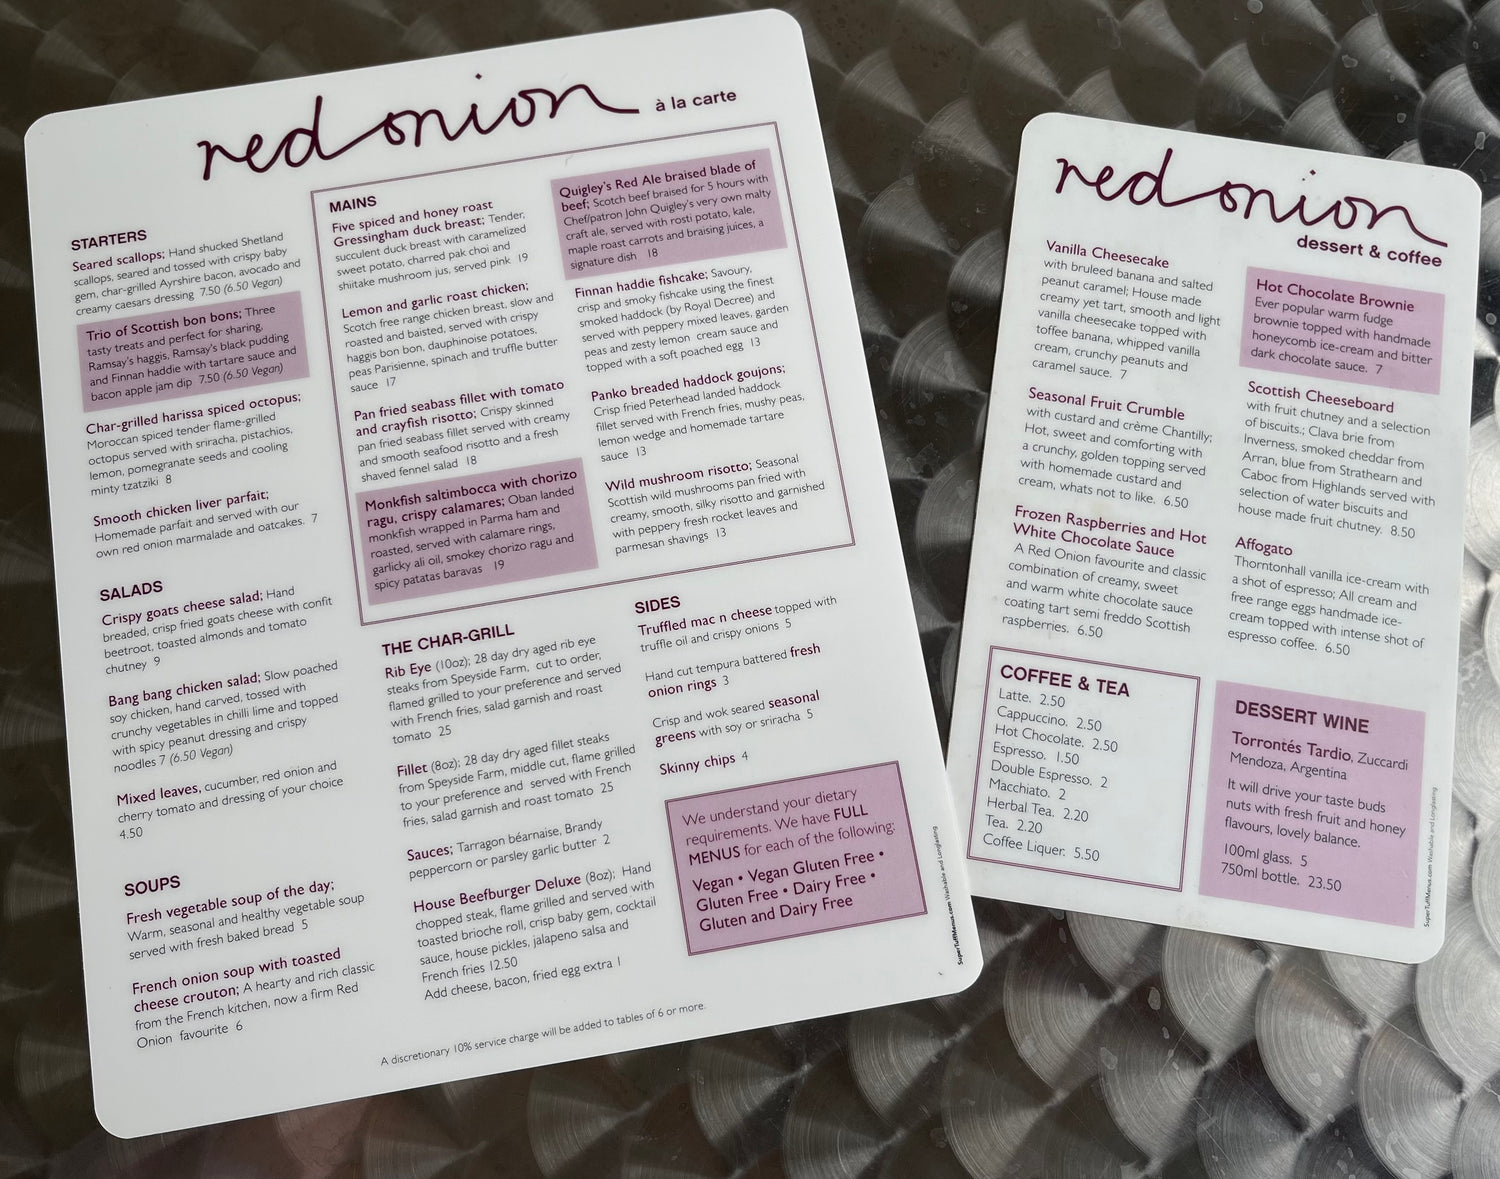 red onion à la carte
STARTERS
Seared scallops; Hand shucked Shetland
scallops, seared and tossed with crispy baby
gem, char-grilled Ayrshire bacon, avocado and
creamy caesars dressing 7.50 (6.50 Vegan)
Trio of Scottish bon bons; Three
tasty treats and perfect for sharing,
Ramsay's haggis, Ramsay's black pudding
and Finnan haddie with tartare sauce and
bacon apple jam dip 7.50 (6.50 Vegan)
Char-grilled harissa spiced octopus;
Moroccan spiced tender flame-grilled
octopus served with sriracha, pistachios,
lemon, pomegranate seeds and cooling
minty tzatziki 8
Smooth chicken liver parfait;
Homemade parfait and served with our
own red onion marmalade and oatcakes. 7
SALADS
Crispy goats cheese salad; Hand
breaded, crisp fried goats cheese with confit
beetroot, toasted almonds and tomato
chutney 9
Bang bang chicken salad; Slow poached
soy chicken, hand carved, tossed with
crunchy vegetables in chilli lime and topped
with spicy peanut dressing and crispy
noodles 7 (6.50 Vegan)
Mixed leaves, cucumber, red onion and
cherry tomato and dressing of your choice
4.50
SOUPS
Fresh vegetable soup of the day;
Warm, seasonal and healthy vegetable soup
served with fresh baked bread 5
French onion soup with toasted
cheese crouton; A hearty and rich classic
from the French kitchen, now a firm Red
Onion favourite 6
MAINS
Five spiced and honey roast
Gressingham duck breast; Tender,
succulent duck breast with caramelized
sweet potato, charred pak choi and
shiitake mushroom jus, served pink 19
Lemon and garlic roast chicken;
Scotch free range chicken breast, slow and
roasted and baisted, served with crispy
haggis bon bon, dauphinoise potatoes,
peas Parisienne, spinach and truffle butter
sauce 17
Pan fried seabass fillet with tomato
and crayfish risotto; Crispy skinned
pan fried seabass fillet served with creamy
and smooth seafood risotto and a fresh
shaved fennel salad 18
Monkfish saltimbocca with chorizo
ragu, crispy calamares; Oban landed
monkfish wrapped in Parma ham and
roasted, served with calamare rings,
garlicky ali oil, smokey chorizo ragu and
spicy patatas baravas 19
Quigley's Red Ale braised blade of
beef; Scotch beef braised for 5 hours with
Chef/patron John Quigley's very own malty
craft ale, served with rosti potato, kale,
maple roast carrots and braising juices, a
signature dish 18
Finnan haddie fishcake; Savoury,
crisp and smoky fishcake using the finest
smoked haddock (by Royal Decree) and
served with peppery mixed leaves, garden
peas and zesty lemon cream sauce and
topped with a soft poached egg 13
Panko breaded haddock goujons;
Crisp fried Peterhead landed haddock
fillet served with French fries, mushy peas,
lemon wedge and homemade tartare
sauce 13
Wild mushroom risotto; Seasonal
Scottish wild mushrooms pan fried with
creamy, smooth, silky risotto and garnished
with peppery fresh rocket leaves and
parmesan shavings 13
THE CHAR-GRILL
Rib Eye (10oz); 28 day dry aged rib eye
steaks from Speyside Farm, cut to order,
flamed grilled to your preference and served
with French fries, salad garnish and roast
tomato 25
Fillet (8oz); 28 day dry aged fillet steaks
from Speyside Farm, middle cut, flame grilled
to your preference and served with French
fries, salad garnish and roast tomato 25
Sauces; Tarragon béarnaise, Brandy
peppercorn or parsley garlic butter 2
House Beefburger Deluxe (8oz); Hand
chopped steak, flame grilled and served with
toasted brioche roll, crisp baby gem, cocktail
sauce, house pickles, jalapeno salsa and
French fries 12.50
Add cheese, bacon, fried egg extra 1
SIDES
Truffled mac n cheese topped with
truffle oil and crispy onions 5
Hand cut tempura battered fresh
onion rings 3
Crisp and wok seared seasonal
greens with soy or sriracha 5
Skinny chips 4
We understand your dietary
requirements. We have FULL
MENUS for each of the following:
Vegan • Vegan Gluten Free •
Gluten Free • Dairy Free •
Gluten and Dairy Free
A discretionary 10% service charge will be added to tables of 6 or more.
SuperTuffMenus.com Washable and Longlasting
red onion
dessert & coffee
Vanilla Cheesecake
with bruleed banana and salted
peanut caramel; House made
creamy yet tart, smooth and light
vanilla cheesecake topped with
toffee banana, whipped vanilla
cream, crunchy peanuts and
caramel sauce. 7
Seasonal Fruit Crumble
with custard and crème Chantilly;
Hot, sweet and comforting with
a crunchy, golden topping served
with homemade custard and
cream, whats not to like. 6.50
Frozen Raspberries and Hot
White Chocolate Sauce
A Red Onion favourite and classic
combination of creamy, sweet
and warm white chocolate sauce
coating tart semi freddo Scottish
raspberries. 6.50
Hot Chocolate Brownie
Ever popular warm fudge
brownie topped with handmade
honeycomb ice-cream and bitter
dark chocolate sauce. 7
Scottish Cheeseboard
with fruit chutney and a selection
of biscuits.; Clava brie from
Inverness, smoked cheddar from
Arran, blue from Strathearn and
Caboc from Highlands served with
selection of water biscuits and
house made fruit chutney. 8.50
Affogato
Thorntonhall vanilla ice-cream with
a shot of espresso; All cream and
free range eggs handmade ice-
cream topped with intense shot of
espresso coffee. 6.50
COFFEE & TEA
Latte. 2.50
Cappuccino. 2.50
Hot Chocolate. 2.50
Espresso. 1.50
Double Espresso. 2
Macchiato. 2
Herbal Tea. 2.20
Tea. 2.20
Coffee Liquer. 5.50
DESSERT WINE
Torrontés Tardio, Zuccardi
Mendoza, Argentina
It will drive your taste buds
nuts with fresh fruit and honey
flavours, lovely balance.
100ml glass. 5
750ml bottle. 23.50
SuperTuffMenus.com Washable and Longlasting